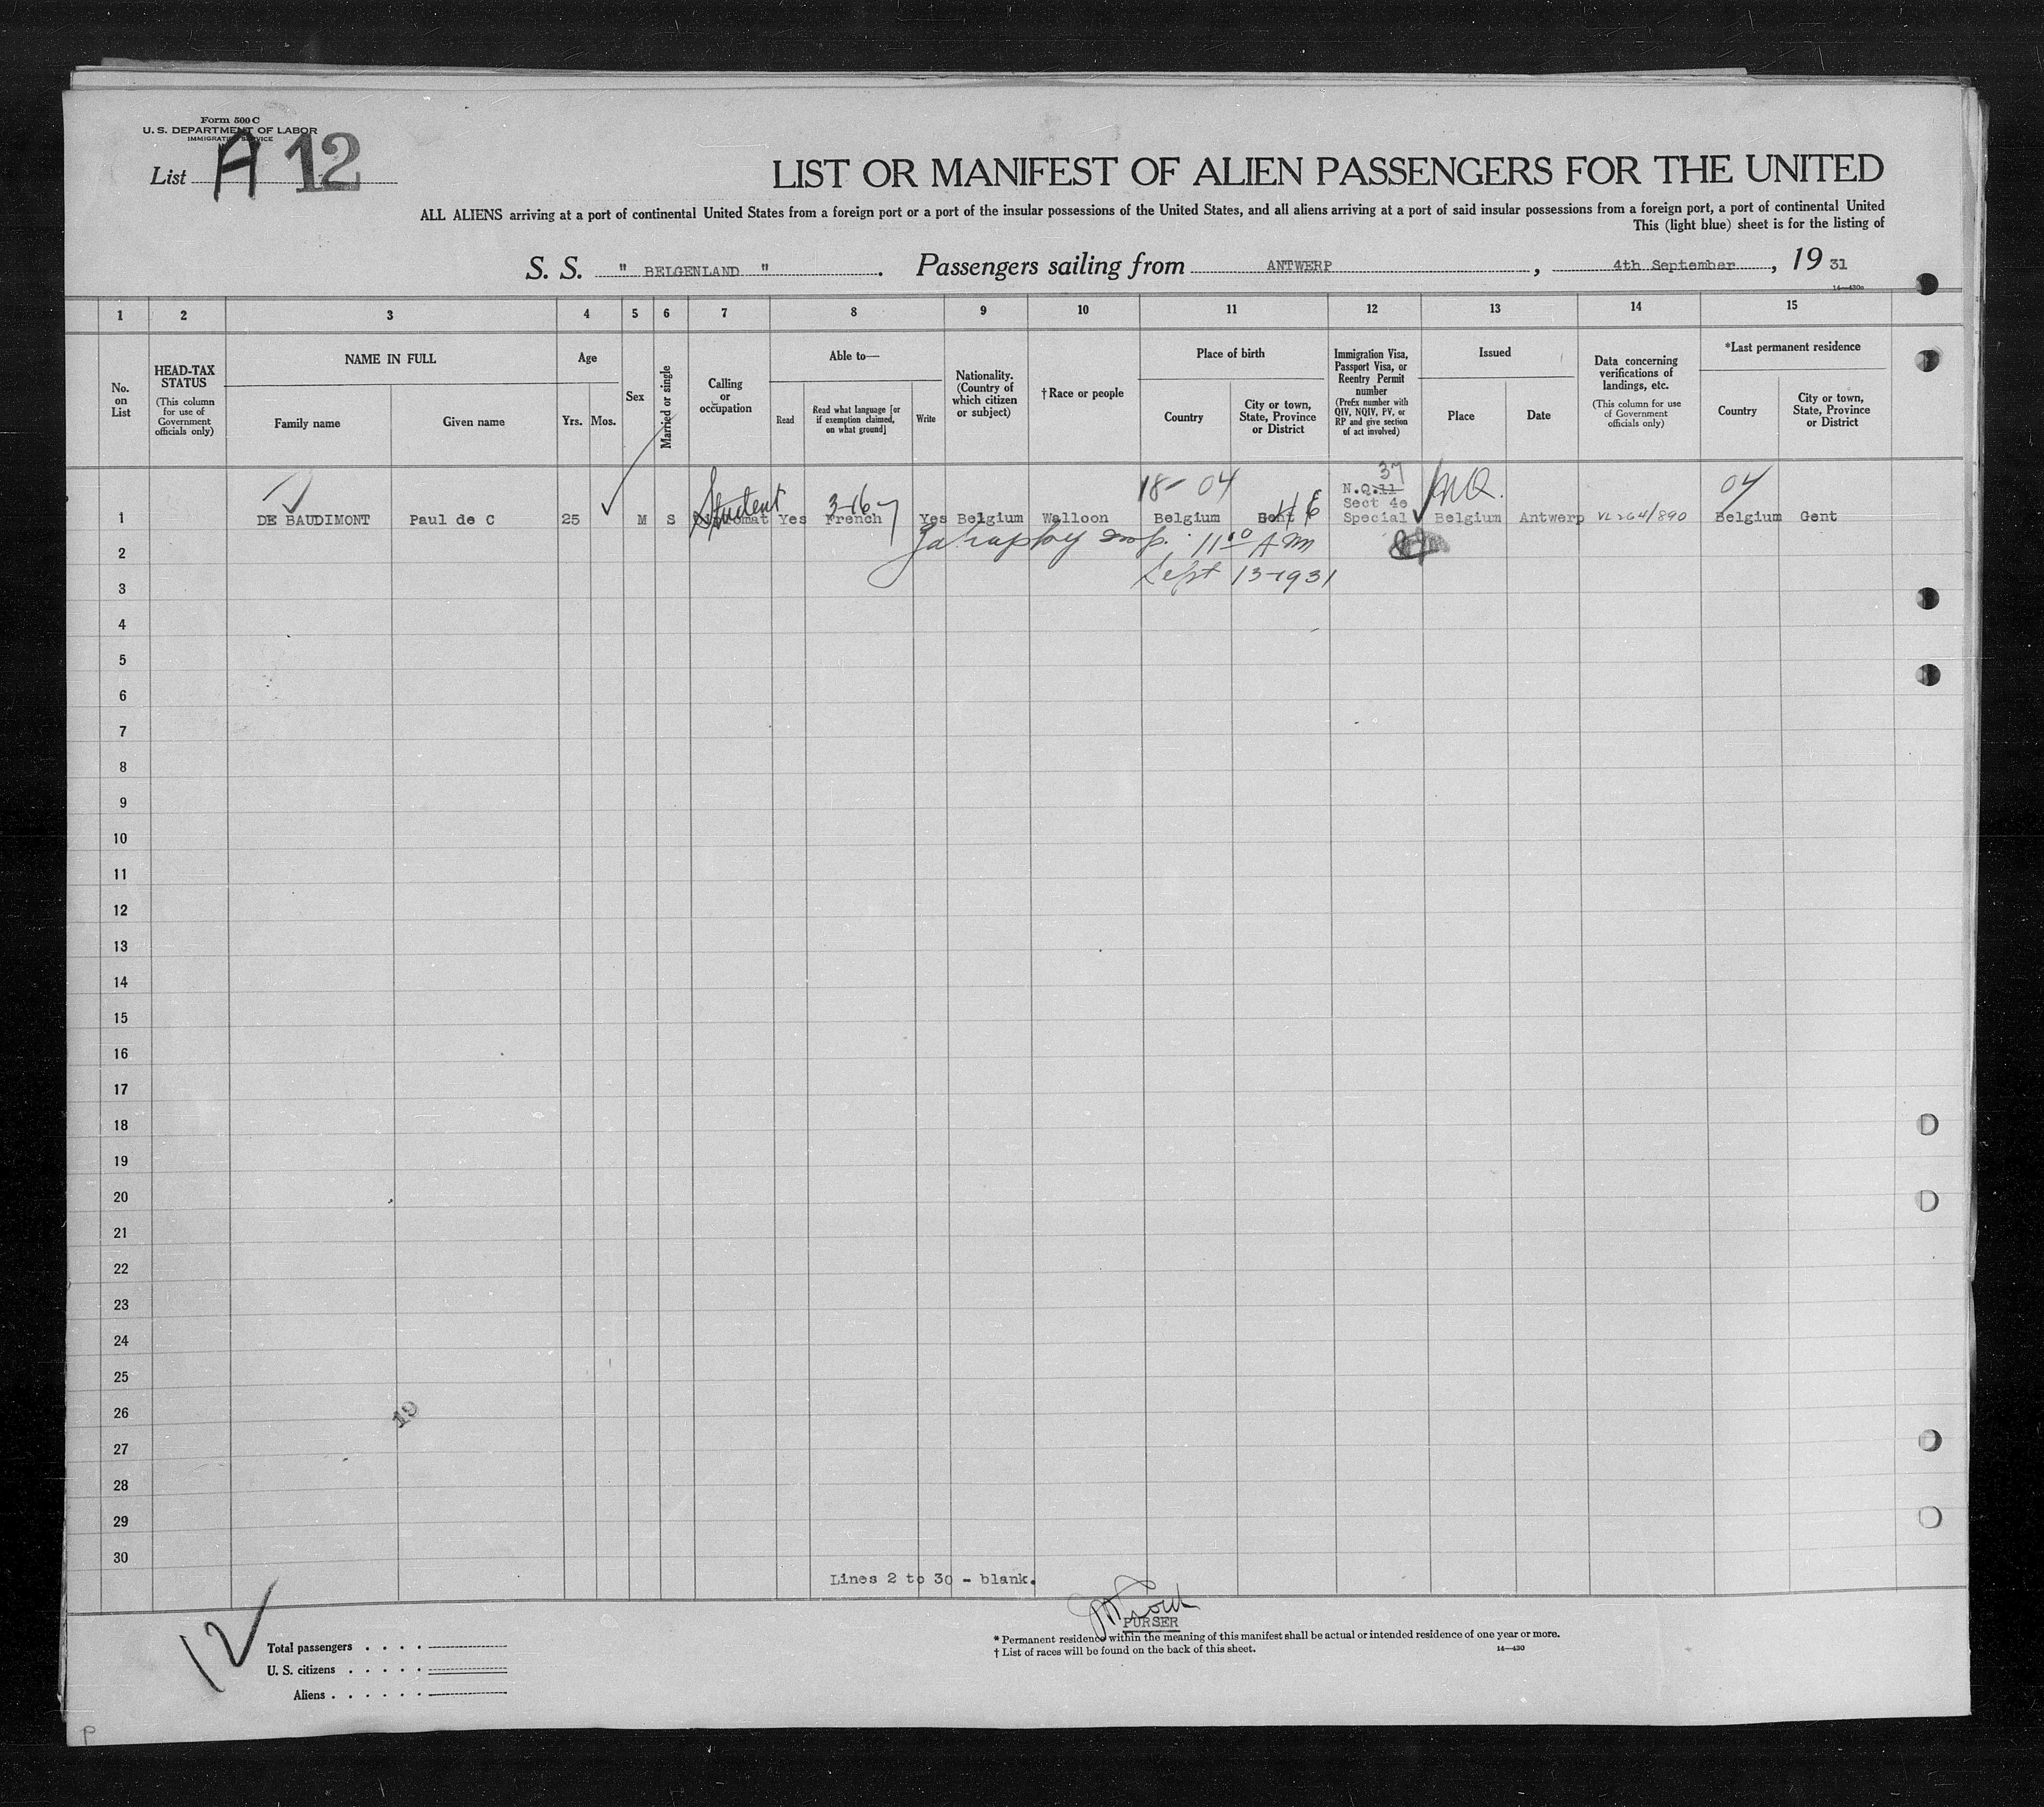 Form 500 C
U. S. DEPARTMENT OF LABOR
IMMIGRATION SERVICE
List A 12
LIST OR MANIFEST OF ALIEN PASSENGERS FOR THE UNITED
ALL ALIENS arriving at a port of continental United States from a foreign port or a port of the insular possessions of the United States, and all aliens arriving at a port of said insular possessions from a foreign port, a port of continental United
This (light blue) sheet is for the listing of
S. S. " BELGENLAND " . Passengers sailing from ANTWERP , 4th September , 19 31
1 2 3 4 5 6 7 8 9 10 11 12 13 14 15
No. on List
HEAD-TAX STATUS (This column for use of Government officials only)
NAME IN FULL
Family name
Given name
Age
Yrs. Mos.
Sex
Married or single
Calling or occupation
Able to—
Read
Read what language [or if exemption claimed, on what ground]
Write
Nationality. (Country of which citizen or subject)
†Race or people
Place of birth
Country
City or town, State, Province or District
Immigration Visa, Passport Visa, or Reentry Permit number (Prefix number with QIV, NQIV, PV, or RP and give section of act involved)
Issued
Place
Date
Data concerning verifications of landings, etc. (This column for use of Government officials only)
*Last permanent residence
Country
City or town, State, Province or District
18- 04 37 NQ. 04
N.Q.11
Sect 4e
1 DE BAUDIMONT Paul de C 25 M S Student Yes French 3-16-7 Yes Belgium Walloon Belgium Gent Special Belgium Antwerp VL 264/890 Belgium Gent
11 00 AM
Sept 13-1931
2
3
4
5
6
7
8
9
10
11
12
13
14
15
16
17
18
19
20
21
22
23
24
25
26
19
27
28
29
30
Lines 2 to 30 - blank.
PURSER
12
Total passengers
U. S. citizens
Aliens
* Permanent residence within the meaning of this manifest shall be actual or intended residence of one year or more.
† List of races will be found on the back of this sheet.
14—430
P